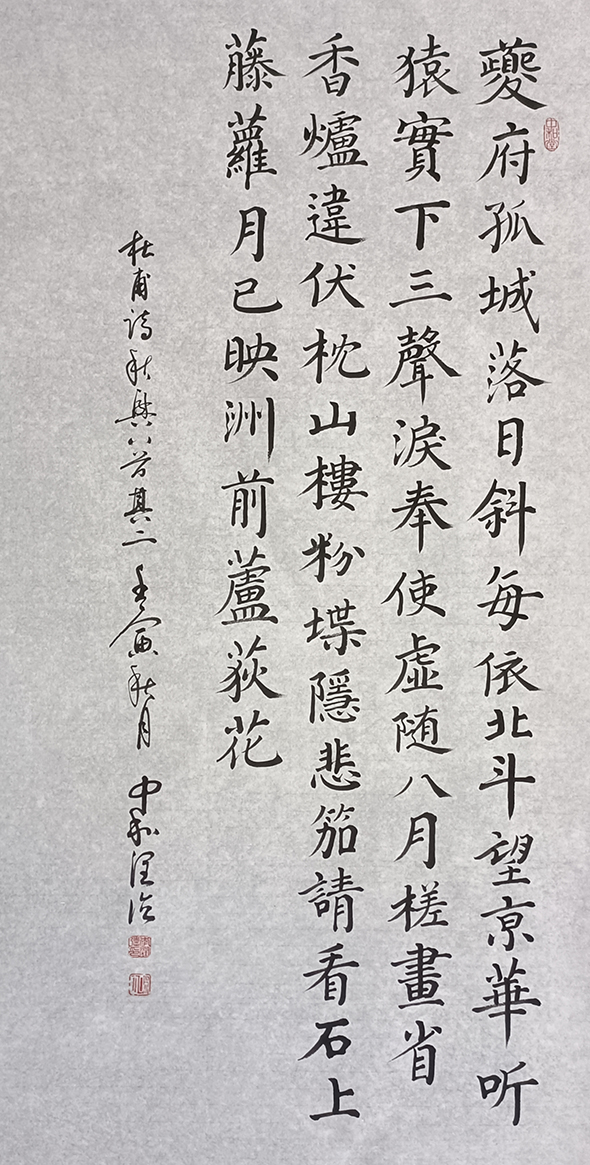 夔府孤城落日斜每依北斗望京華听
猿實下三聲淚奉使虛随八月槎畫省
香爐違伏枕山樓粉堞隱悲笳請看石上
藤蘿月已映洲前蘆荻花
杜甫詩秋興八首其二 壬寅秋月 中和